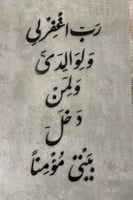 رَبِّ اغْفِرْ لِي
وَلِوَالِدَيَّ
وَلِمَنْ
دَخَلَ
بَيْتِيَ مُؤْمِنًا